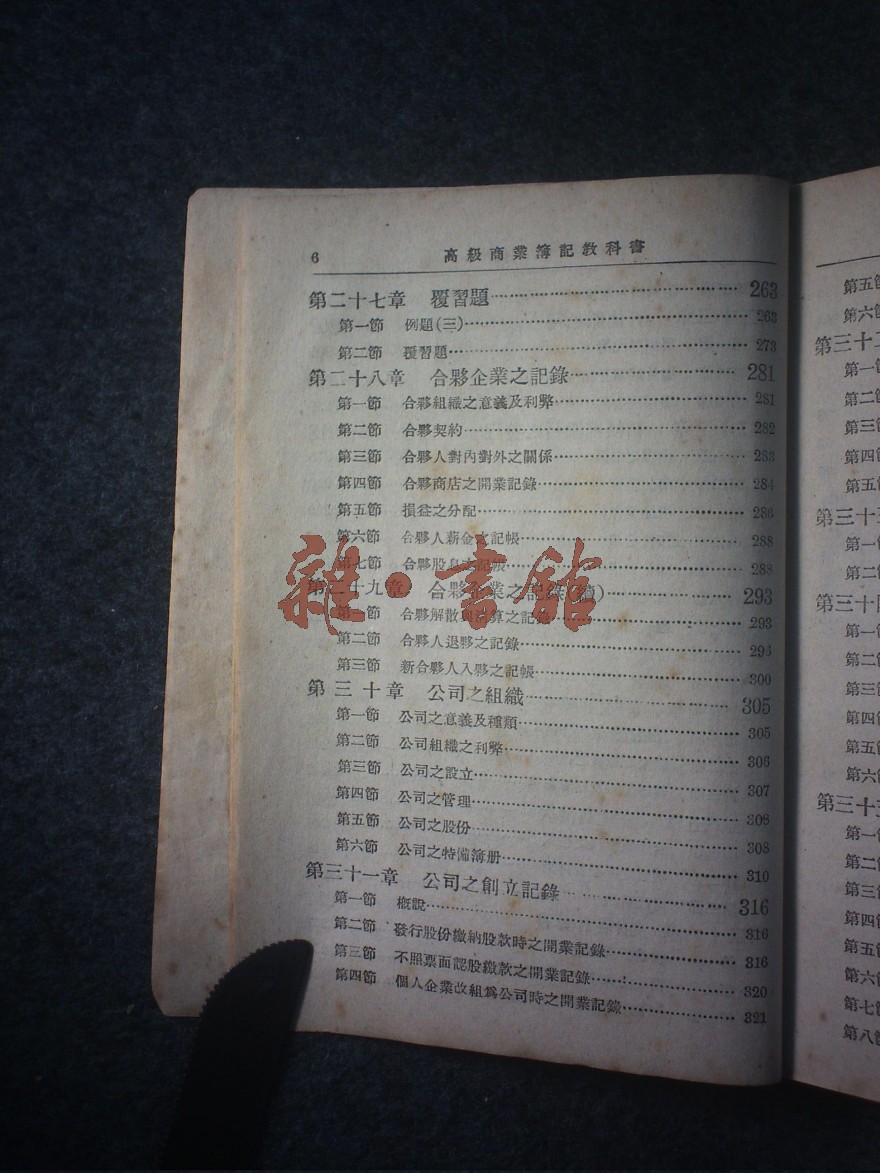 6 高級商業簿記教科書
第二十七章 覆習題 263
第一節 例題(三) 263
第二節 覆習題 273
第二十八章 合夥企業之記錄 281
第一節 合夥組織之意義及利弊 281
第二節 合夥契約 282
第三節 合夥人對內對外之關係 283
第四節 合夥商店之開業記錄 284
第五節 損益之分配 286
第六節 合夥人薪金之記帳 288
第七節 合夥股息之記帳 288
第二十九章 合夥企業之記錄(續) 293
第一節 合夥解散與清算之記錄 293
第二節 合夥人退夥之記錄 296
第三節 新合夥人入夥之記帳 300
第三十章 公司之組織 305
第一節 公司之意義及種類 305
第二節 公司組織之利弊 306
第三節 公司之設立 307
第四節 公司之管理 308
第五節 公司之股份 308
第六節 公司之特備簿册 310
第三十一章 公司之創立記錄 316
第一節 概說 316
第二節 發行股份繳納股款時之開業記錄 316
第三節 不照票面認股繳款之開業記錄 320
第四節 個人企業改組爲公司時之開業記錄 321
雜·書館
第五
第六
第三十
第一
第二
第三
第四
第五
第三十
第一
第二
第三十
第一
第二
第三
第四
第五
第六
第三十
第一
第二
第三
第四
第五
第六
第七
第八